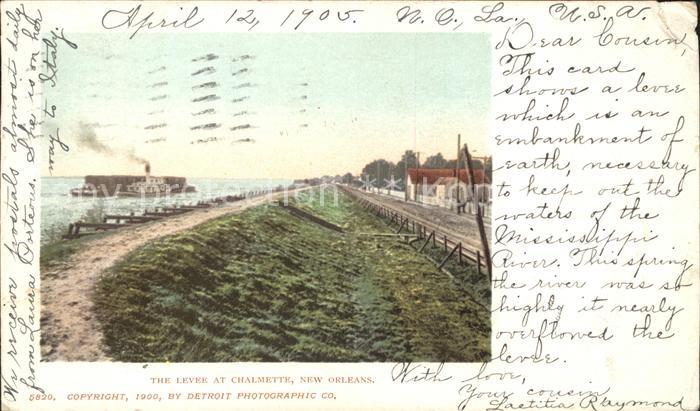 April 12, 1905. N. O., La., U. S. A.
Dear Cousin,
This card
shows a levee
which is an
embankment of
earth, necessary
to keep out the
waters of the
Mississippi
River. This spring
the river was so
highly it nearly
overflowed the
levee.
With love,
Your cousin
Laetitia Raymond
We receive postals almost daily
from Laura Porteous. She is on her
way to Italy.
THE LEVEE AT CHALMETTE, NEW ORLEANS.
5820. COPYRIGHT, 1900, BY DETROIT PHOTOGRAPHIC CO.